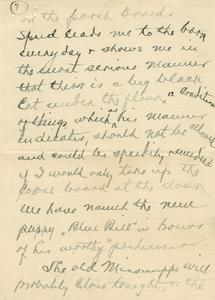 on the porch board.
Spud leads me to the barn
everyday & shows me in
the most serious manner
that there is a big black
cat under the floor, a condition
of things which ^as^ his manner
indicates, should not be allowed
and could be speedily remedied
if I would only take up the
loose board at the door.
We have named the new
puppy "Blue Bell" in honor
of his worthy predecessor.
The old Mississippi will
probably close tonight, or the